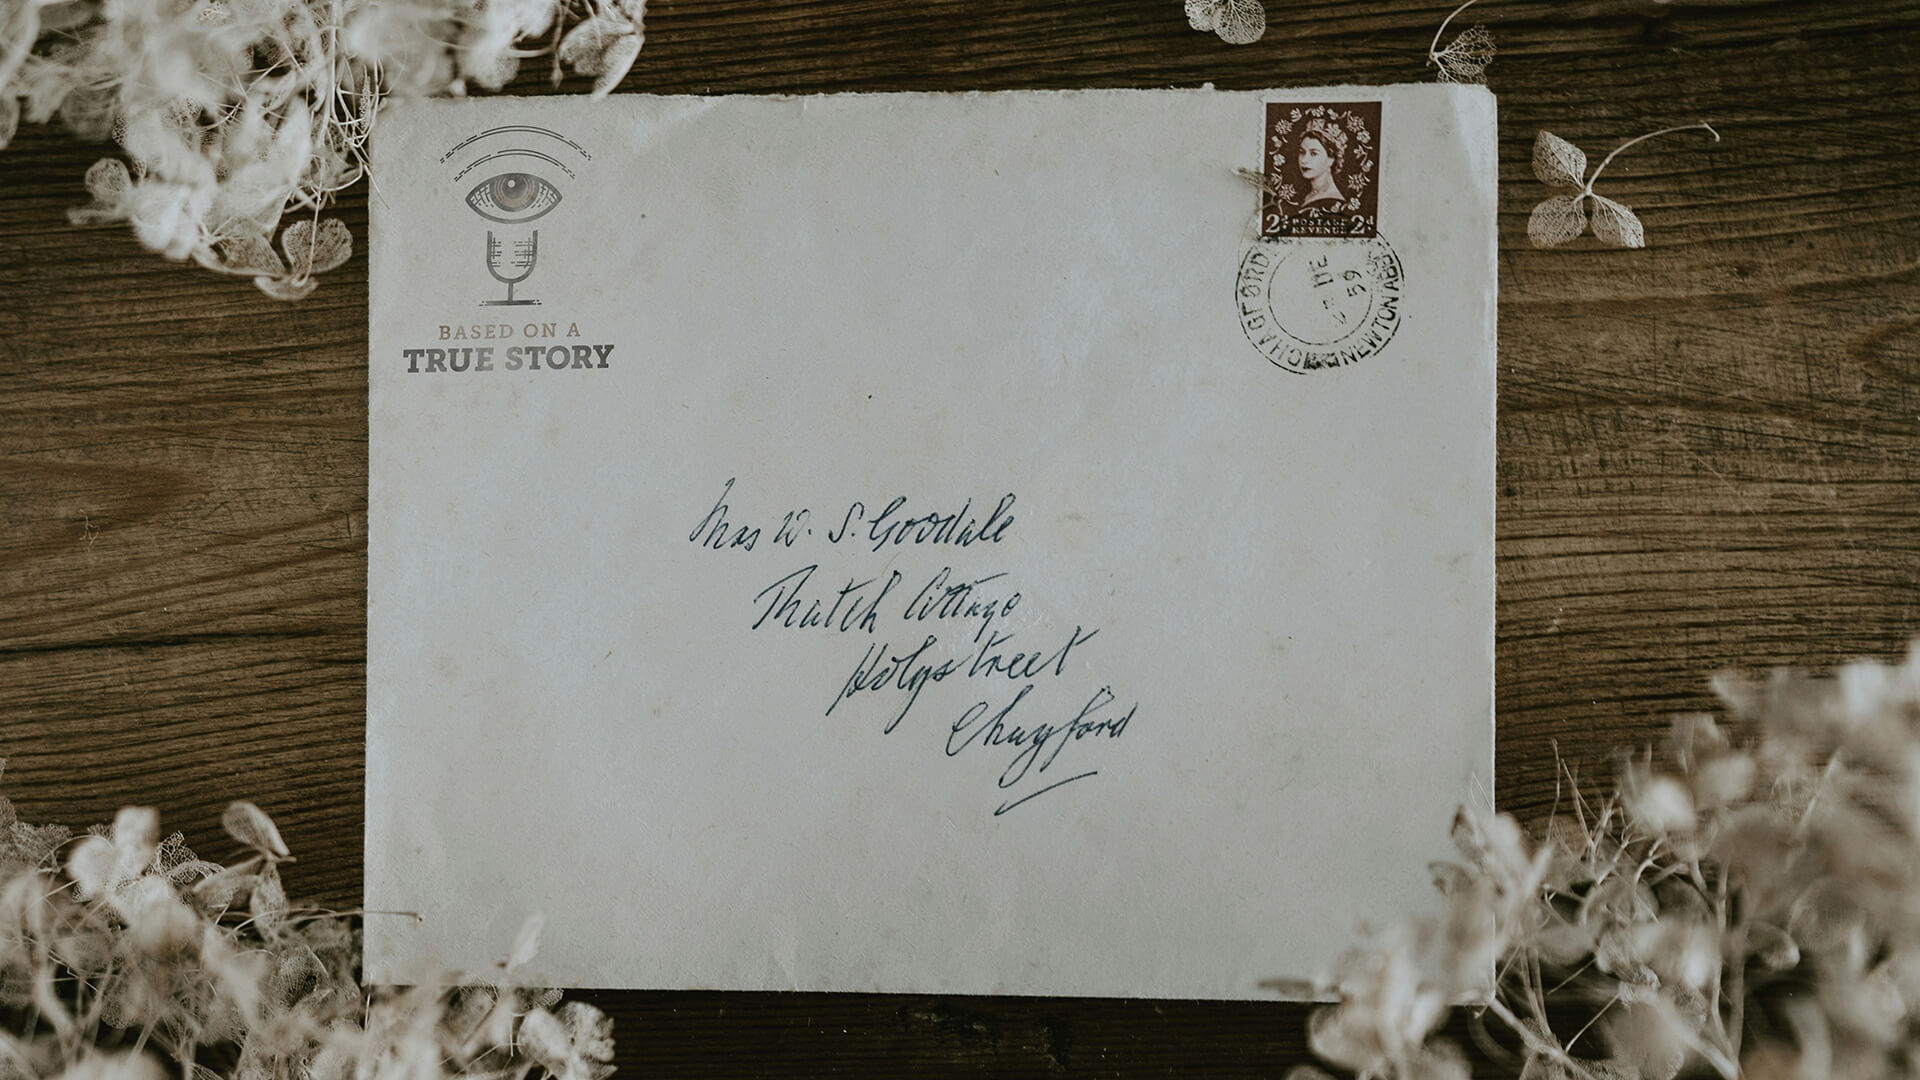 BASED ON A
TRUE STORY
2d POSTAGE 2d
REVENUE
CHAGFORD
NEWTON ABB
DE
59
Mrs W. S. Goodale
Thatch Cottage
Holystreet
Chagford